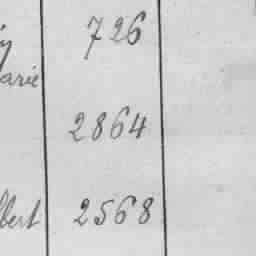 726
arie
2864
lbert 2568